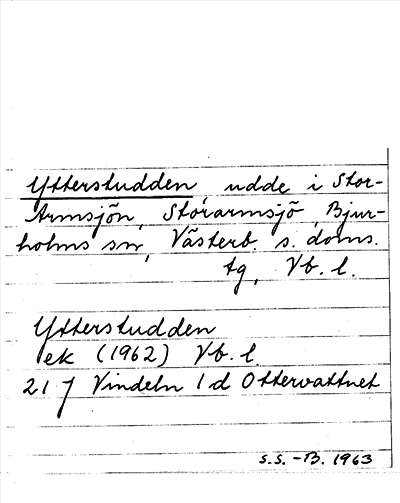 Ytterstudden udde i Stor-
Armsjön, Storarmsjö, Bjur-
holms sn, Västerb. s. doms.
tg, Vb. l.
Ytterstudden
ek (1962) Vb. l.
21 J Vindeln 1 d Ottervattnet
S.S. -B. 1963